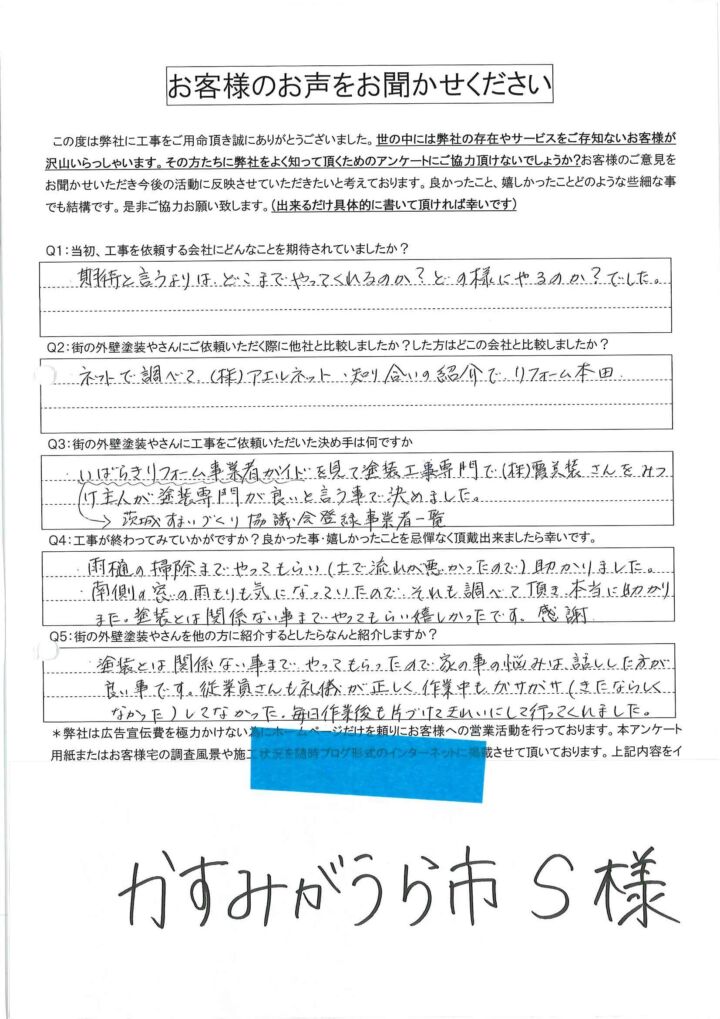 お客様のお声をお聞かせください
この度は弊社に工事をご用命頂き誠にありがとうございました。世の中には弊社の存在やサービスをご存知ないお客様が
沢山いらっしゃいます。その方たちに弊社をよく知って頂くためのアンケートにご協力頂けないでしょうか?お客様のご意見を
お聞かせいただき今後の活動に反映させていただきたいと考えております。良かったこと、嬉しかったことどのような些細な事
でも結構です。是非ご協力お願い致します。(出来るだけ具体的に書いて頂ければ幸いです)
Q1:当初、工事を依頼する会社にどんなことを期待されていましたか?
期待と言うよりは、どこまでやってくれるのか?どの様にやるのか?でした。
Q2:街の外壁塗装やさんにご依頼いただく際に他社と比較しましたか?した方はどこの会社と比較しましたか?
ネットで調べて、(株)アエルネット、知り合いの紹介で、リフォーム本田
Q3:街の外壁塗装やさんに工事をご依頼いただいた決め手は何ですか
いばらきリフォーム事業者ガイドを見て塗装工事専門で(株)霞美装さんをみつ
け主人が塗装専門が良いと言う事で決めました。
→茨城すまいづくり協議会登録事業者一覧
Q4:工事が終わってみていかがですか?良かった事・嬉しかったことを忌憚なく頂戴出来ましたら幸いです。
雨樋の掃除までやってもらい(土で流れが悪かったので)助かりました。
南側の窓の雨もりも気になっていたので、それも調べて頂き、本当に助かり
また。塗装とは関係ない事までやってもらい嬉しかったです。感謝
Q5:街の外壁塗装やさんを他の方に紹介するとしたらなんと紹介しますか?
塗装とは関係ない事まで、やってもらったので家の事の悩みは、話しした方が
良い事です。従業員さんも礼儀が正しく作業中も、ガサガサ(きたならしく
なかった)してなかった。毎日作業後も片づけてきれいにして行ってくれました。
*弊社は広告宣伝費を極力かけない為にホームページだけを頼りにお客様への営業活動を行っております。本アンケート
用紙またはお客様宅の調査風景や施工状況を随時ブログ形式のインターネットに掲載させて頂いております。上記内容をイ
かすみがうら市 S様